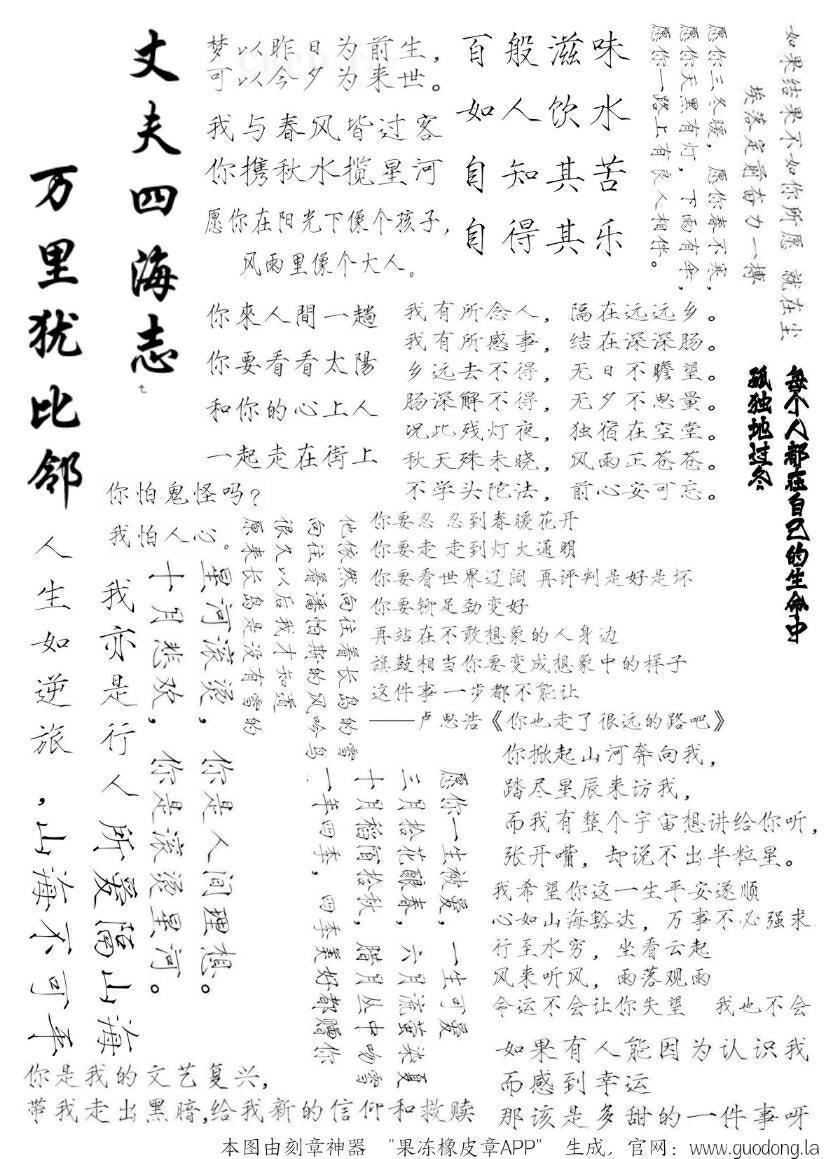 丈夫四海志
万里犹比邻
梦以昨日为前生，
可以今夕为来世。
我与春风皆过客
你携秋水揽星河
愿你在阳光下像个孩子，
风雨里像个大人。
百般滋味
如人饮水
自知其苦
自得其乐
愿你三冬暖，愿你春不寒，
愿你天黑有灯，下雨有伞，
愿你一路上有良人相伴。
如果结果不如你所愿 就在尘
埃落定前奋力一搏
你來人間一趟
你要看看太陽
和你的心上人
一起走在街上
我有所念人，隔在远远乡。
我有所感事，结在深深肠。
乡远去不得，无日不瞻望。
肠深解不得，无夕不思量。
况此残灯夜，独宿在空堂。
秋天殊未晓，风雨正苍苍。
不学头陀法，前心安可忘。
每个人都在自己的生命中
孤独地过冬
你怕鬼怪吗？
我怕人心。
他依然向往着长岛的雪
向往着潘帕斯的风吟鸟
很久以后我才知道
原来长岛是没有雪的
你要忍 忍到春暖花开
你要走 走到灯火通明
你要看世界辽阔 再评判是好是坏
你要铆足劲变好
再站在不敢想象的人身边
旗鼓相当你要变成想象中的样子
这件事一步都不能让
——卢思浩《你也走了很远的路吧》
星河滚烫，你是人间理想。
十月悲欢，你是滚烫星河。
人生如逆旅，山海不可平
我亦是行人所爱隔山海
愿你一生被爱，一生可爱
三月拾花酿春，六月流萤染夏
十月稻酒拾秋，腊月丛中吻雪
一年四季，四季美好都赠你
你掀起山河奔向我，
踏尽星辰来访我，
而我有整个宇宙想讲给你听，
张开嘴，却说不出半粒星。
我希望你这一生平安遂顺
心如山海豁达，万事不必强求
行至水穷，坐看云起
风来听风，雨落观雨
命运不会让你失望 我也不会
你是我的文艺复兴，
带我走出黑暗,给我新的信仰和救赎
如果有人能因为认识我
而感到幸运
那该是多甜的一件事呀
本图由刻章神器 "果冻橡皮章APP" 生成，官网：www.guodong.la